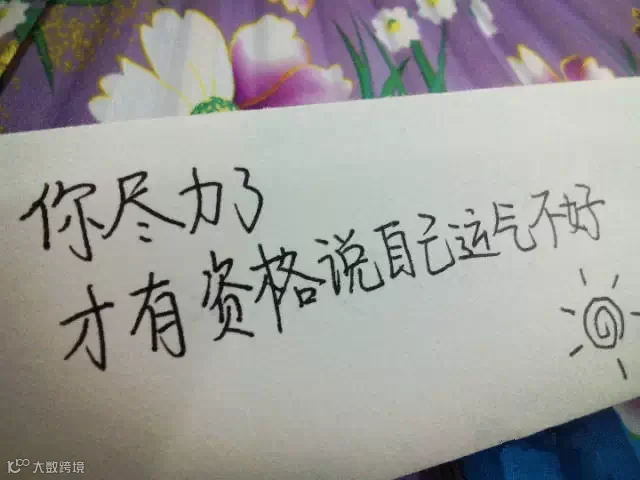 你尽力了
才有资格说自己运气不好
大数跨境